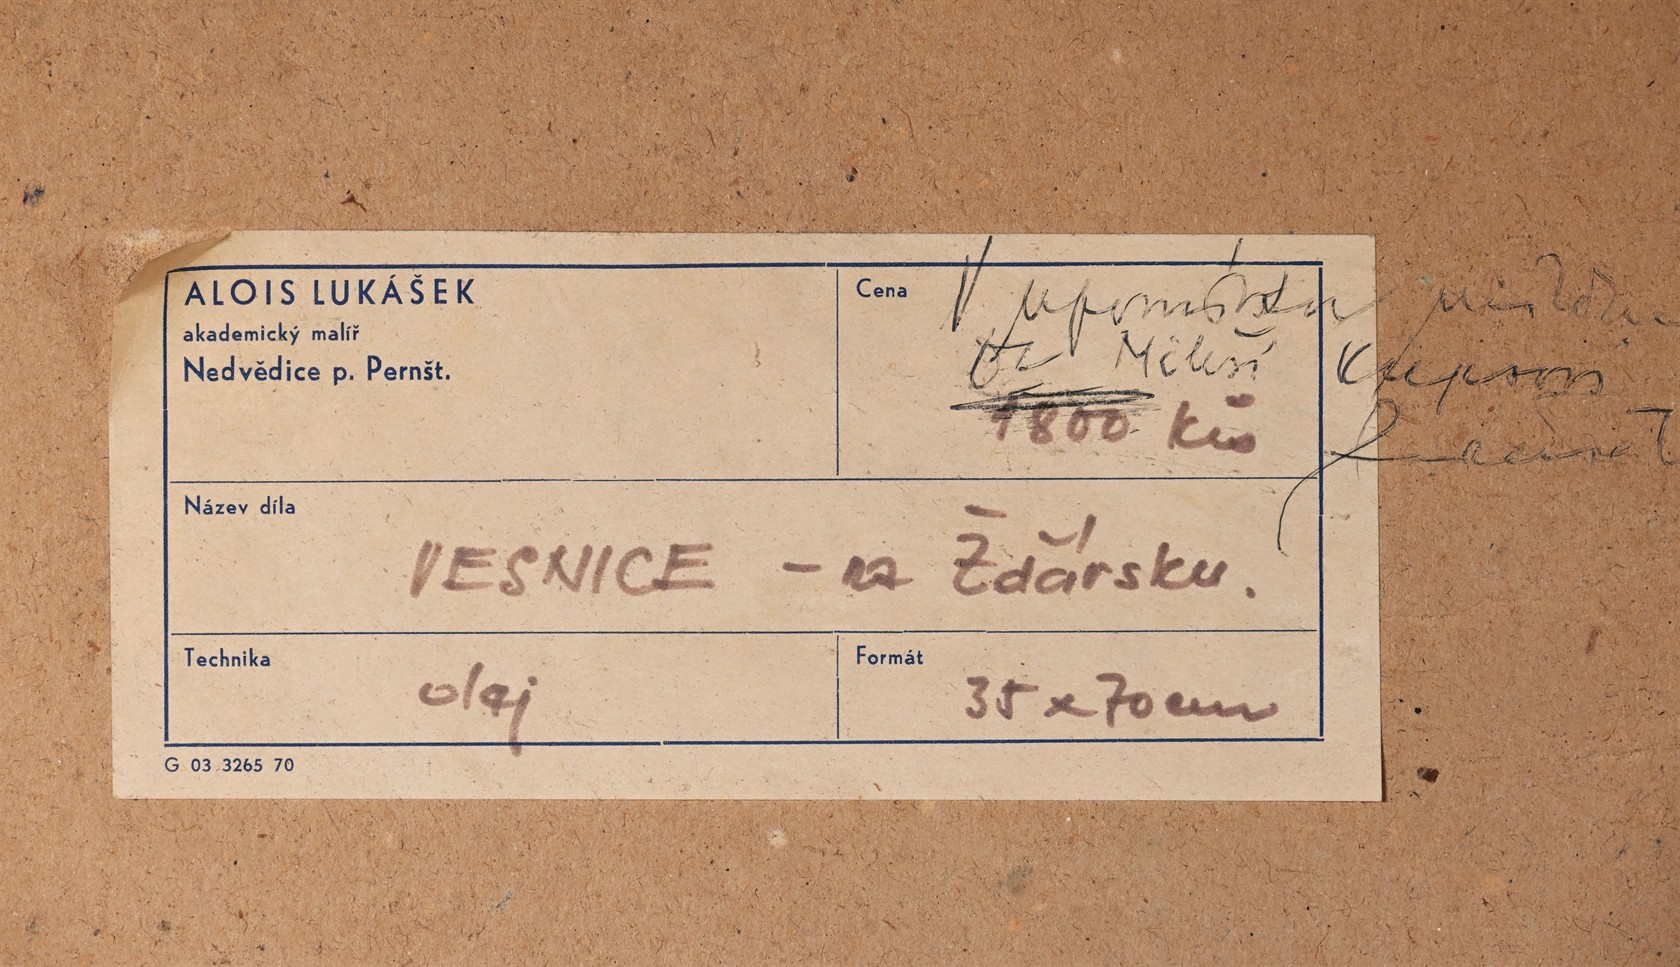 ALOIS LUKÁŠEK
akademický malíř
Nedvědice p. Pernšt.
Cena
V upomínku
1800 Kčs
Název díla
VESNICE - na Žďársku.
Technika
olej
Formát
35 x 70 cm
G 03 3265 70